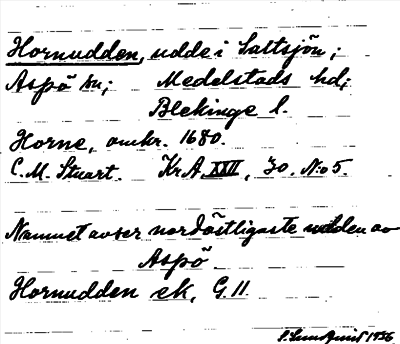 Hornudden, udde i Saltsjön;
Aspö sn; Medelstads hd;
Blekinge l.
Horne, omkr. 1680.
C.M. Stuart. Kr.A. XXII, 30. N:o 5.
Namnet avser nordöstligaste udden av
Aspö
Hornudden ek, G.11
1956